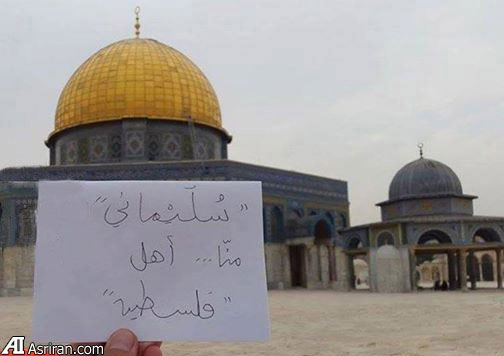 "سُلَيْماني"
منّا... أهل
"فلسطين"
Asriran.com